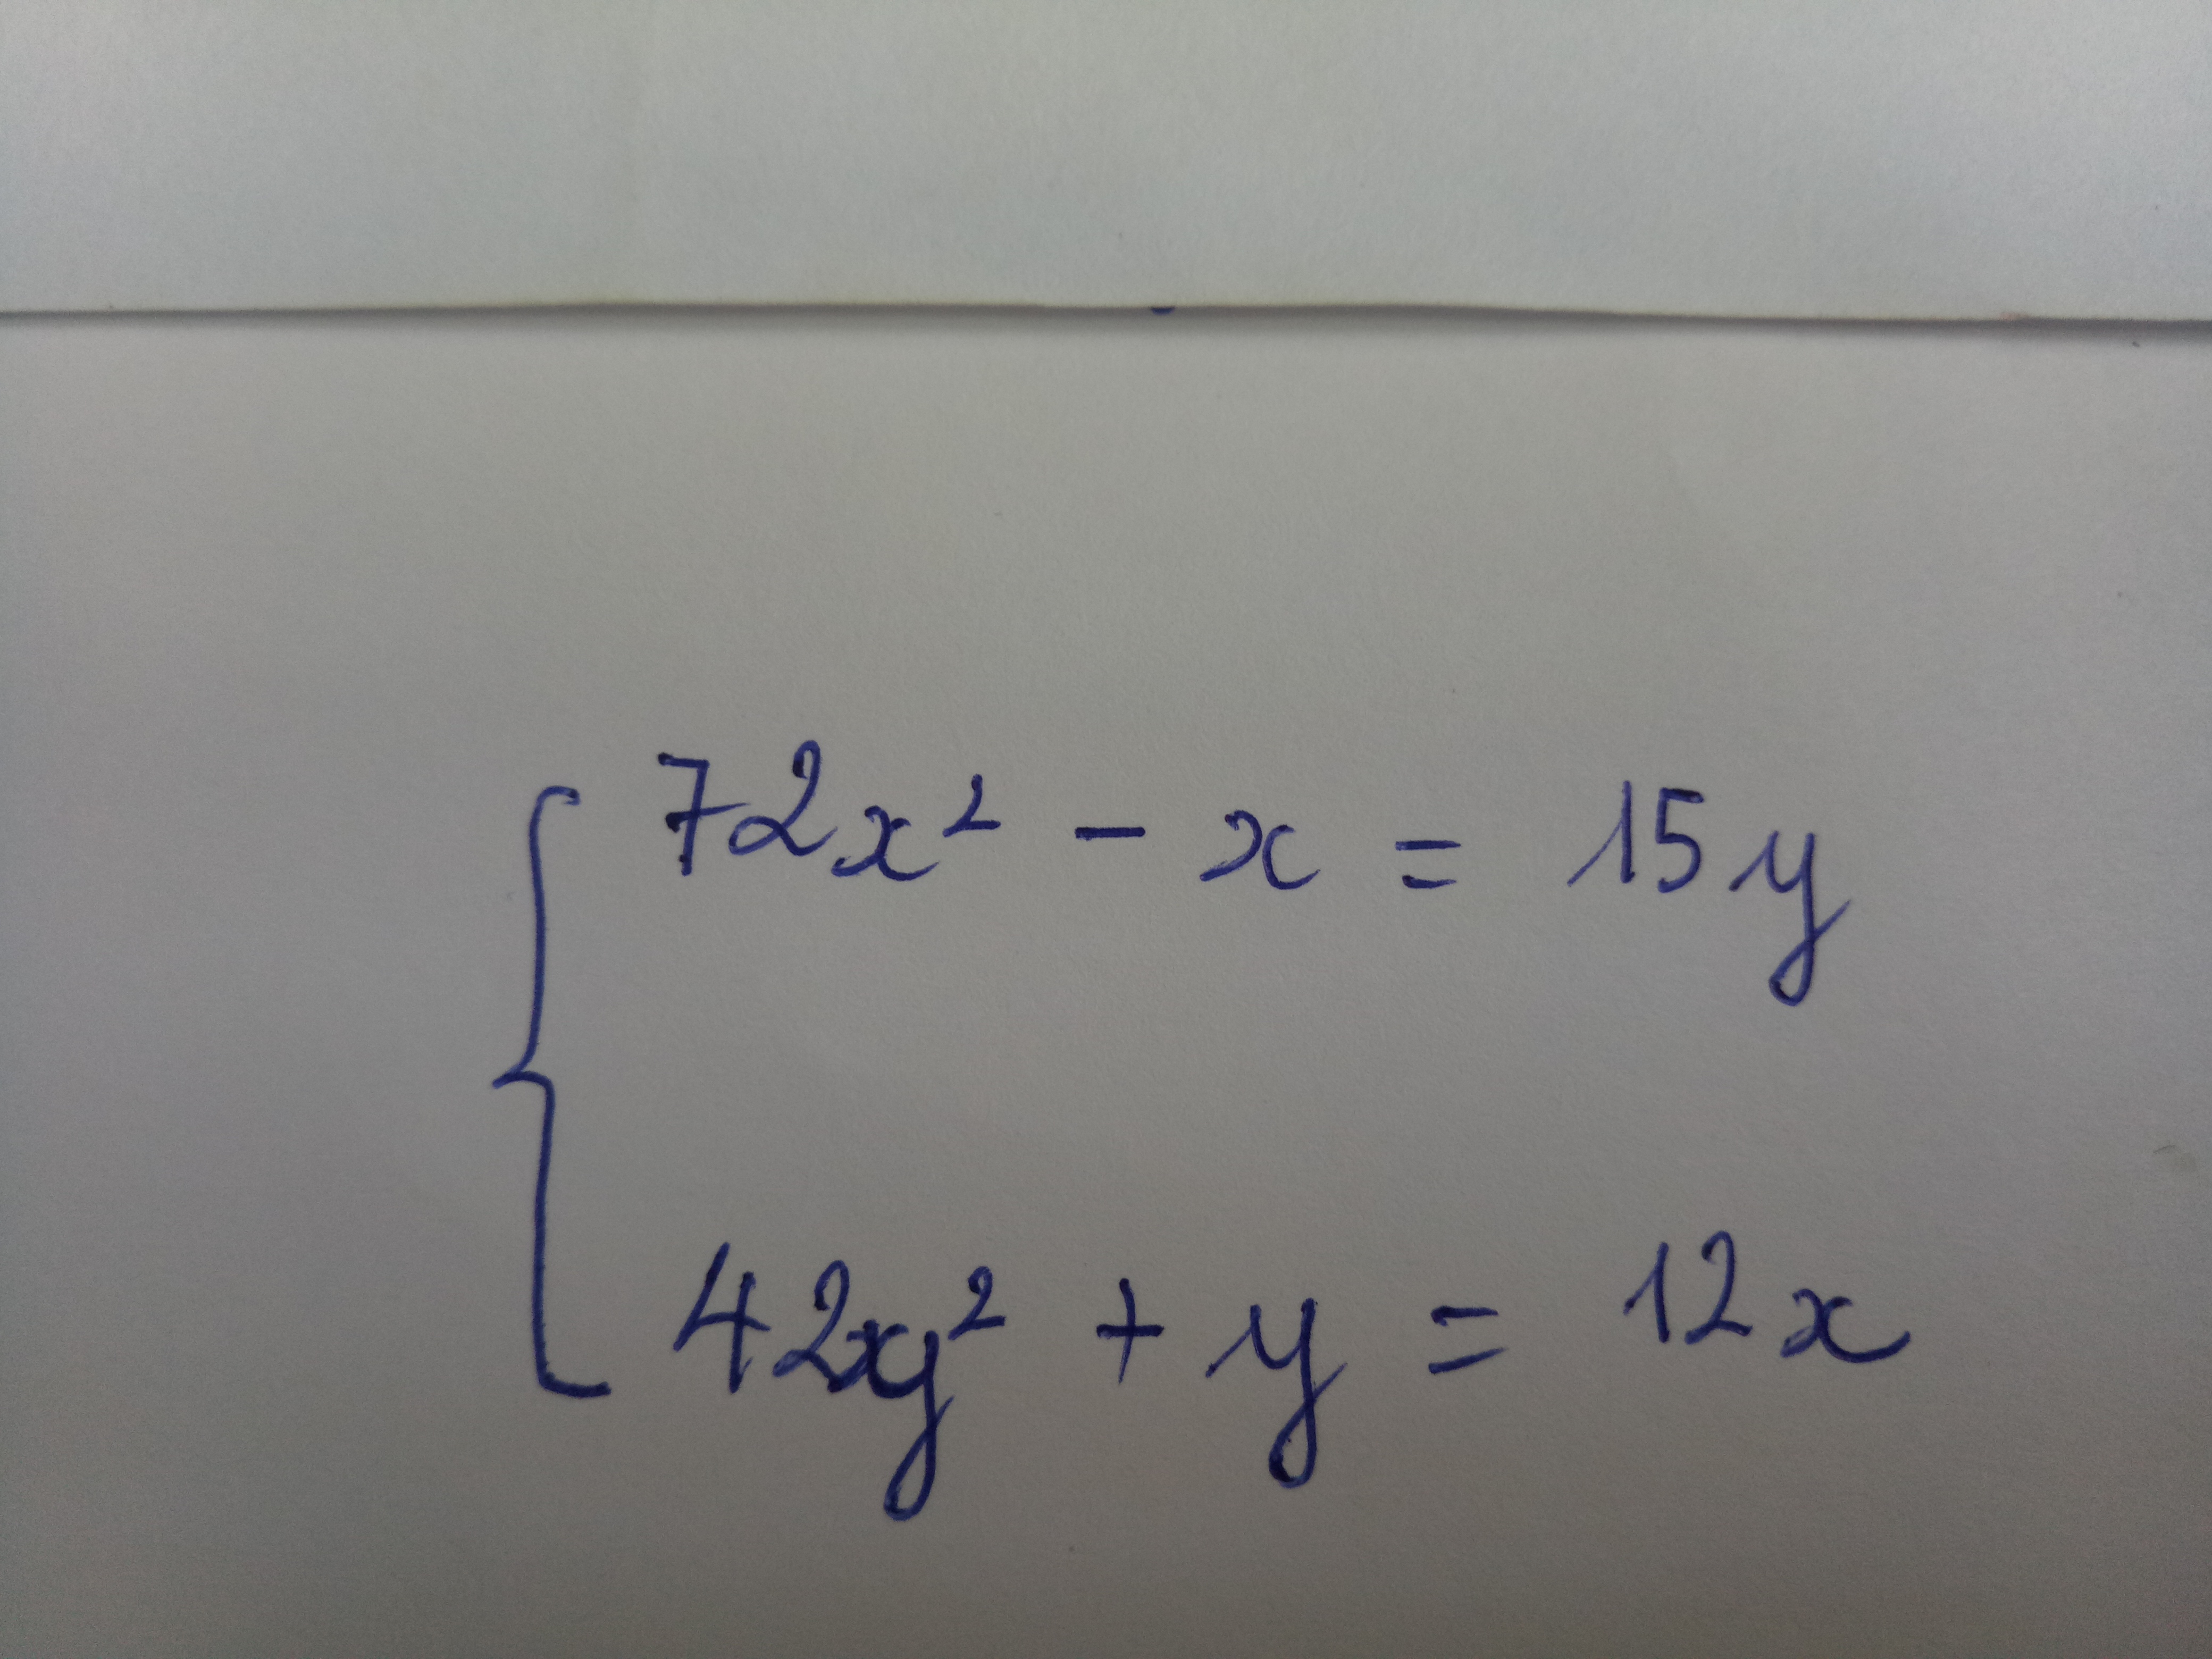 72x² - x = 15y
42xy² + y = 12x